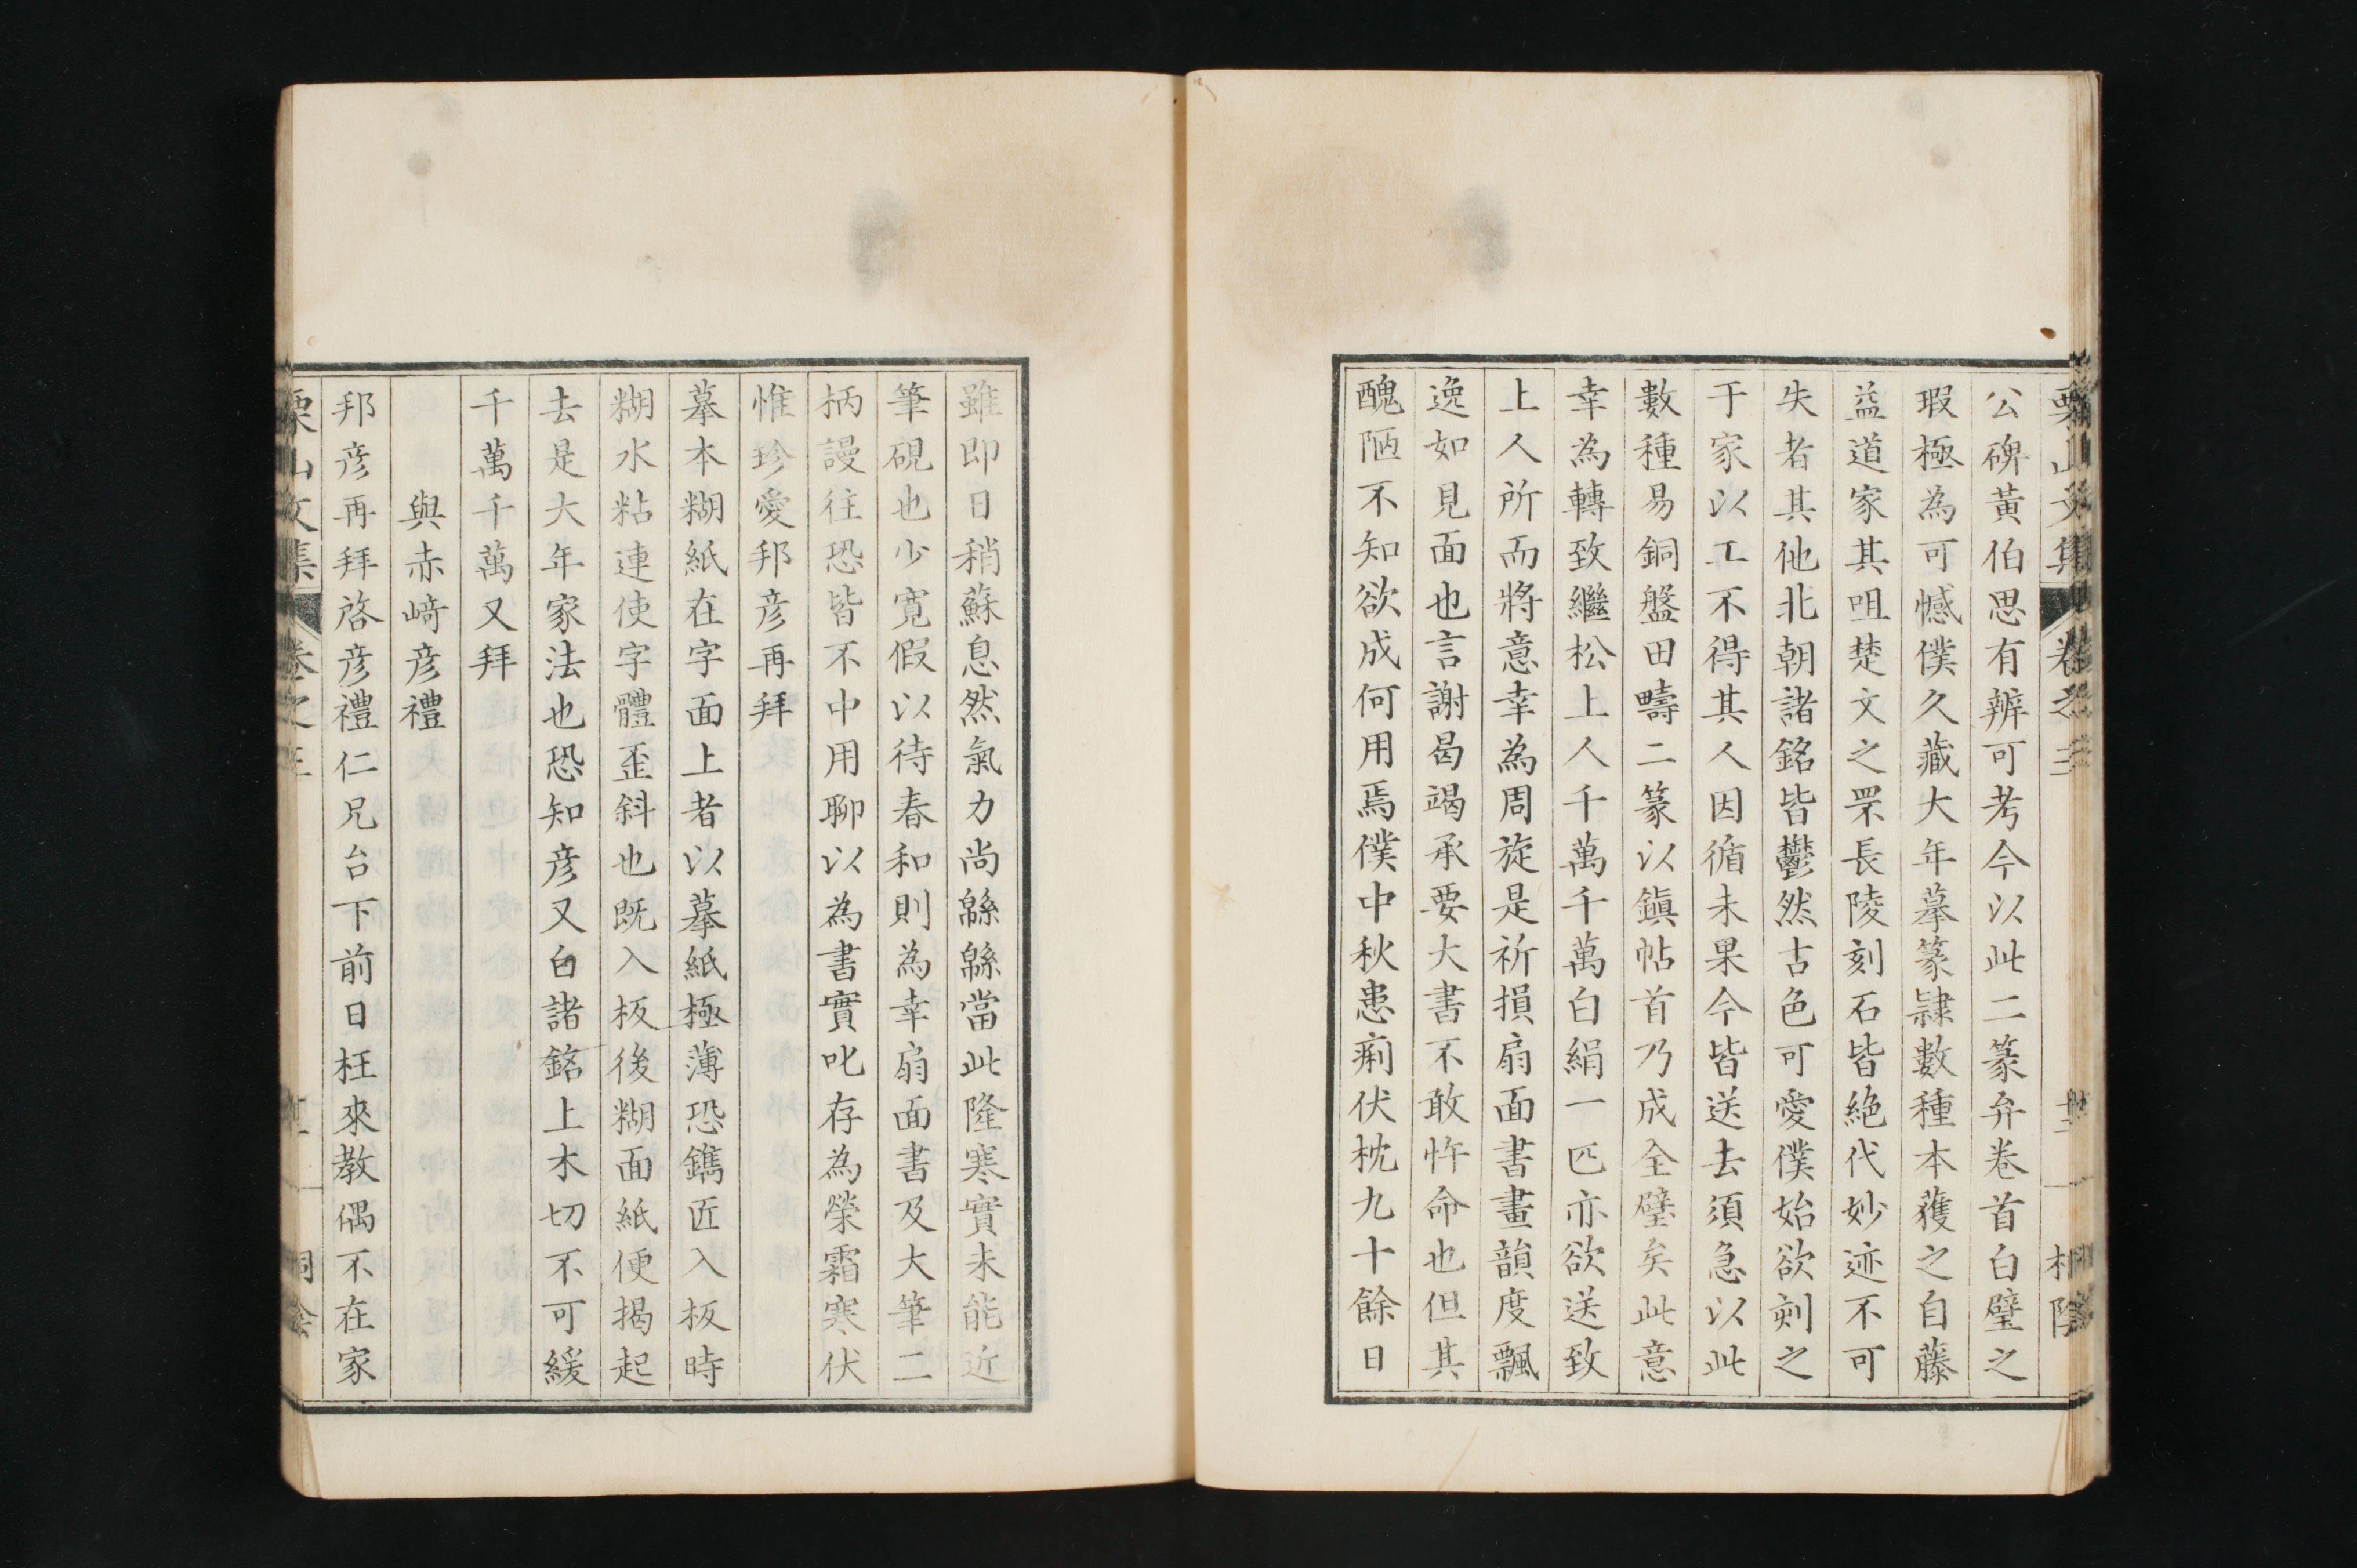 栗山文集 卷之三
公碑黃伯思有辨可考今以此二篆弁卷首白璧之
瑕極為可憾僕久藏大年摹篆隷數種本蒦之自藤
益道家其咀楚文之罘長陵刻石皆絶代妙迹不可
失者其他北朝諸銘皆鬱然古色可愛僕始欲刻之
于家以工不得其人因循未果今皆送去須急以此
數種易銅盤田疇二篆以鎮帖首乃成全璧矣此意
幸為轉致繼松上人千萬千萬白絹一匹亦欲送致
上人所而將意幸為周旋是祈損扇面書畫韻度飄
逸如見面也言謝曷竭承要大書不敢忤命也但其
醜陋不知欲成何用焉僕中秋患痢伏枕九十餘日
雖即日稍蘇息然氣力尚緜緜當此隆寒實未能近
筆硯也少寛假以待春和則為幸扇面書及大筆二
柄謾往恐皆不中用聊以為書實叱存為榮霜寒伏
惟珍愛邦彦再拜
摹本糊紙在字面上者以摹紙極薄恐鐫匠入板時
糊水粘連使字體歪斜也既入板後糊面紙便揭起
去是大年家法也恐知彦又白諸銘上木切不可緩
千萬千萬又拜
與赤﨑彦禮
邦彦再拜啓彦禮仁兄台下前日枉來教偶不在家
栗山文集 卷之三